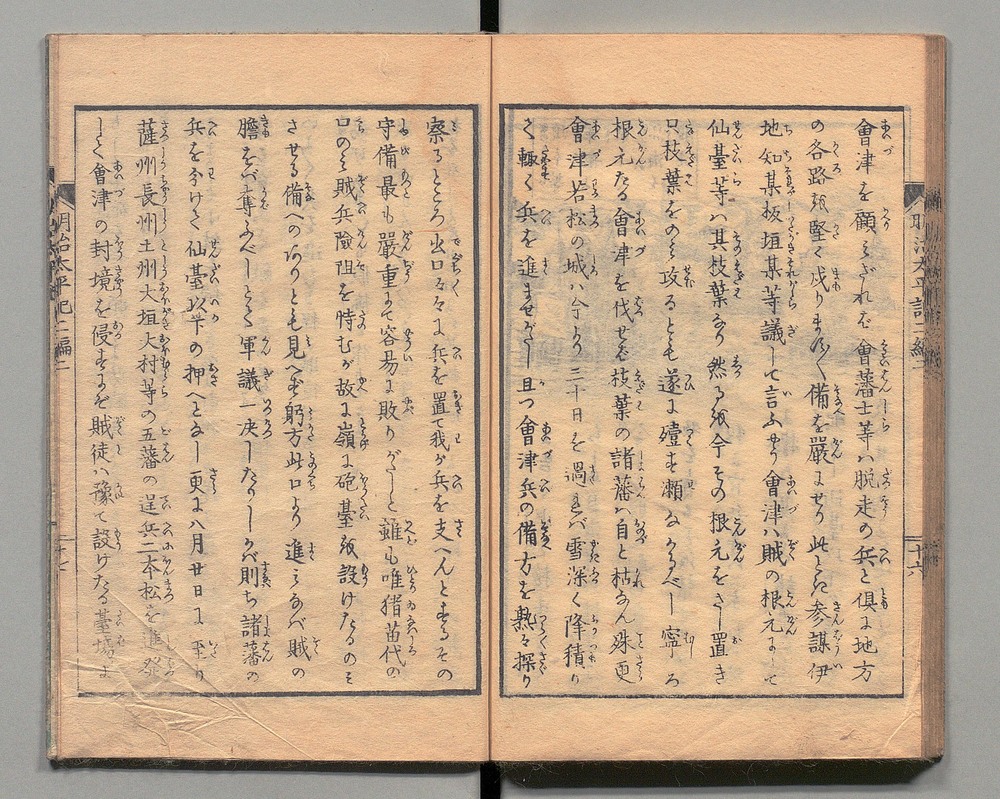 會津を顧みざれば會藩士等ハ脱走の兵と倶に地方
の各路を堅く戍りますく備を嚴にせり此とき参謀伊
地知某板垣某等議して言ふやう會津ハ賊の根元にして
仙臺等ハ其枝葉なり然るを今その根元をさし置き
只枝葉をのミ攻るとも遂に殪す瀬なかるべし寧ろ
根元たる會津を伐せば枝葉の諸藩ハ自と枯なん殊更
會津若松の城ハ今より三十日を過れバ雪深く降積り
て輙く兵を進ませがたし且つ會津兵の備方を熟々探り
十六
察るところ出口々々に兵を置て我が兵を支へんとするその
守備最も嚴重にて容易に敗りがたしと雖も唯猪苗代の
口のミ賊兵險阻を恃むが故に嶺に砲臺を設けたるのミ
させる備へのありとも見へず躬方此口より進ミなバ賊の
膽をバ奪ふべしとて軍議一决したりしかバ則ち諸藩の
兵を分けて仙臺以下の押へとなし更に八月廿日に至り
薩州長州土州大垣大村等の五藩の逞兵二本松を進發
しく會津の封境を侵すにぞ賊徒ハ豫て設けたる臺場によ
明治太平記二編二
十七